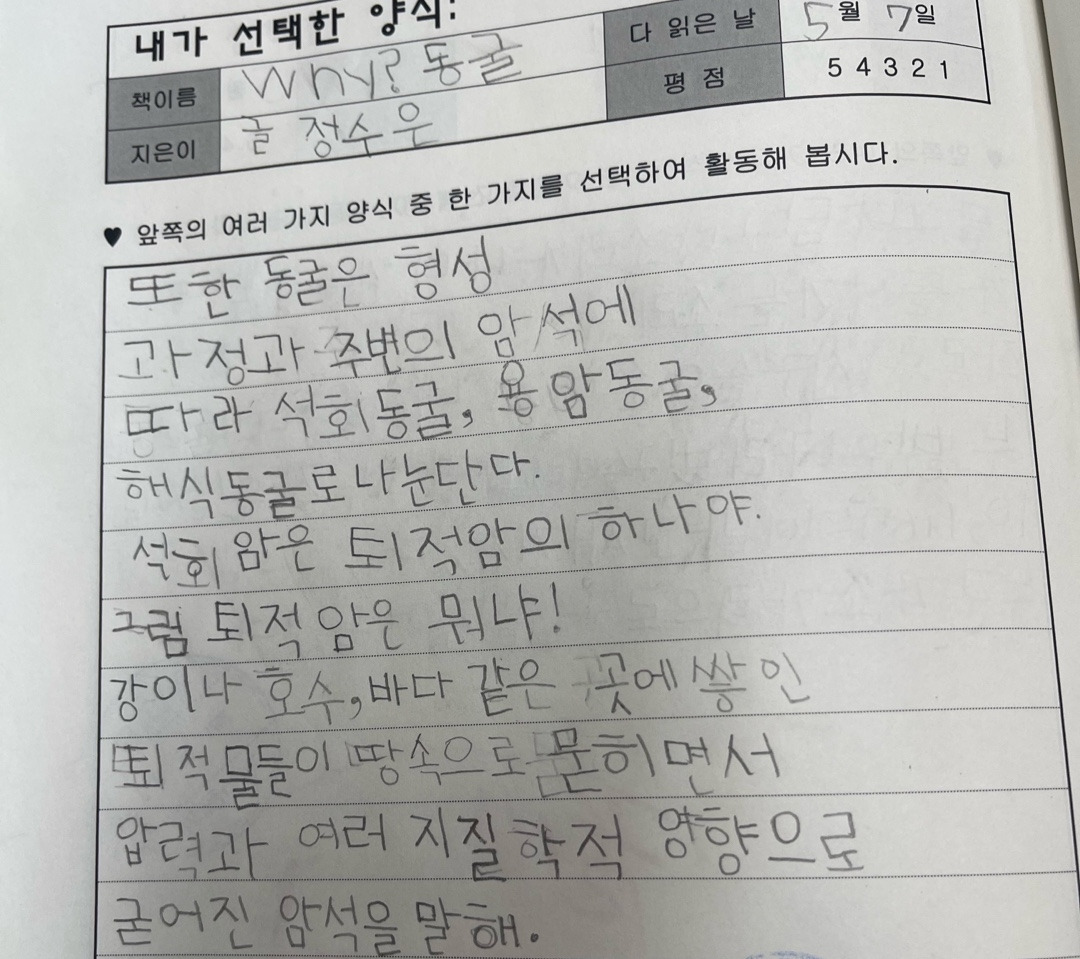 내가 선택한 양식:
책이름 Why? 동굴 다 읽은 날 5월 7일
지은이 글 정수은 평 점 5 4 3 2 1
♥ 앞쪽의 여러 가지 양식 중 한 가지를 선택하여 활동해 봅시다.
또한 동굴은 형성
과정과 주변의 암석에
따라 석회동굴, 용암동굴,
해식동굴로 나눈단다.
석회암은 퇴적암의 하나야.
그럼 퇴적암은 뭐냐!
강이나 호수, 바다 같은 곳에 쌓인
퇴적물들이 땅속으로 묻히면서
압력과 여러 지질학적 영향으로
굳어진 암석을 말해.